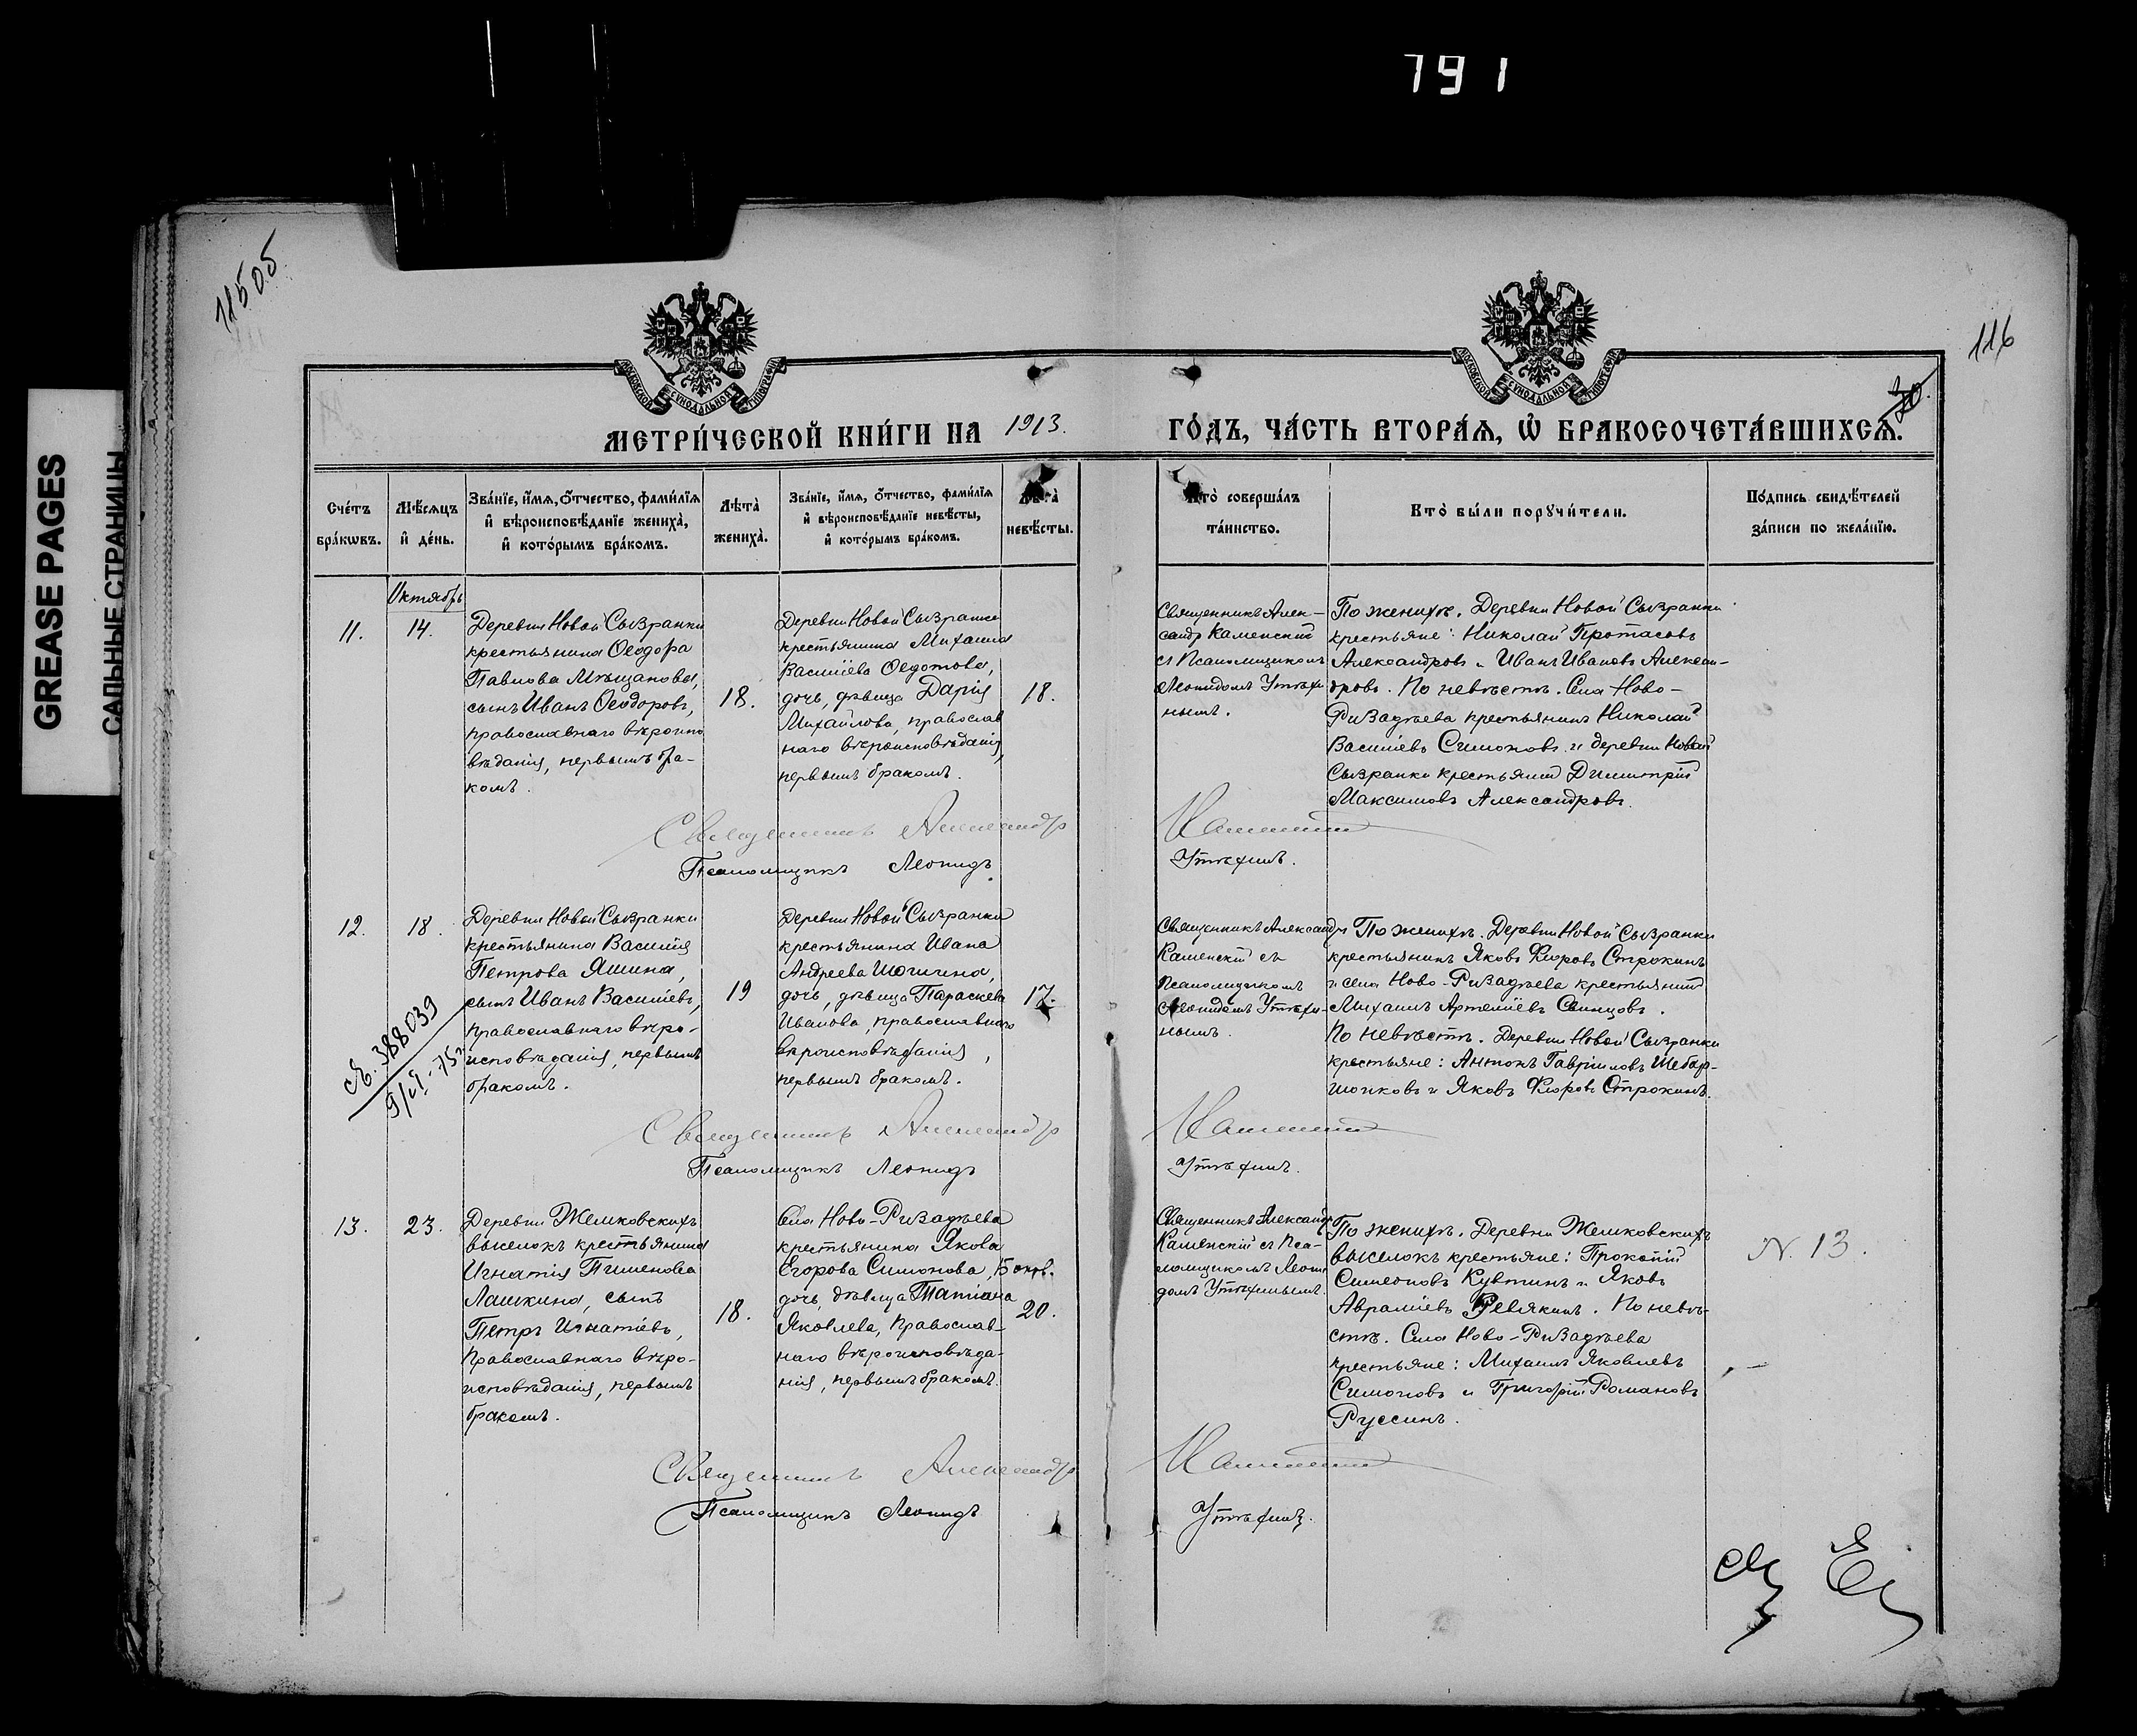 791
GREASE PAGES
САЛЬНЫЕ СТРАНИЦЫ
11505
116
30.
МОСКОВСКОЙ СѴНОДАЛЬНОЙ ТИПОГРАФІИ
МОСКОВСКОЙ СѴНОДАЛЬНОЙ ТИПОГРАФІИ
МЕТРИ́ЧЕСКОЙ КНИ́ГИ НА 1913. ГО́ДЪ, ЧА́СТЬ ВТОРА́Я, Ѡ҆ БРАКОСОЧЕТА́ВШИХСЯ.
Сче́тъ
бра́кѡвъ.
Мѣ́сяцъ
и҆ де́нь.
Зва́нїе, и҆́мя, ѻ҆́тчество, фами́лїя
и҆ вѣроисповѣ́данїе жениха̀,
и҆ кото́рымъ бра́комъ.
Лѣ́та̀
жениха̀.
Зва́нїе, и҆́мя, ѻ҆́тчество, фами́лїя
и҆ вѣроисповѣ́данїе невѣ́сты,
и҆ кото́рымъ бра́комъ.
Лѣ́та̀
невѣ́сты.
Кто̀ соверша́лъ
та́инство.
Кто̀ бы́ли порꙋчи́тели.
По́дпись свидѣ́телей
за́писи по жела́нїю.
Октябрь
11.
14.
Деревни Новой Сызранки
крестьянина Ѳеодора
Павлова Мѣщанова,
сынъ Иванъ Ѳеодоровъ,
православнаго вѣроиспо
вѣданія, первымъ бра-
комъ.
18.
Деревни Новой Сызранки
крестьянина Михаила
Василіева Ѳедотова,
дочь, дѣвица Дарія
Михайлова, православ
наго вѣроисповѣданія,
первымъ бракомъ.
18.
Священникъ Алек-
сандр Каменскій
съ Псаломщикомъ
Леонидомъ Утѣхи
нымъ.
По женихѣ. Деревни Новой Сызранки
крестьяне: Николай Протасовъ
Александровъ и Иванъ Ивановъ Алексан-
дровъ. По невѣстѣ. Села Ново-
Ризадѣева крестьянинъ Николай
Василіевъ Симоновъ и деревни Новой
Сызранки крестьянин Димитрій
Максимовъ Александровъ.
Священникъ Александр Каменскій
Псаломщикъ Леонидъ Утѣхинъ.
12.
18.
Деревни Новой Сызранки
крестьянина Василія
Петрова Яшина,
сынъ Иванъ Василіевъ,
православнаго вѣро-
исповѣданія, первымъ
бракомъ.
19
Деревни Новой Сызранки
крестьянина Ивана
Андреева Шогина,
дочь, дѣвица Параскева
Иванова, православнаго
вѣроисповѣданія,
первымъ бракомъ.
17.
Священникъ Александр
Каменскій съ
Псаломщикомъ
Леонидомъ Утѣхи-
нымъ.
По женихѣ. Деревни Новой Сызранки
крестьянинъ Яковъ Флоровъ Строкинъ
и села Ново-Ризадѣева крестьянинъ
Михаилъ Артеміевъ Свинцовъ.
По невѣстѣ. Деревни Новой Сызранки
крестьяне: Антонъ Гавріиловъ Шебар-
шопковъ и Яковъ Флоровъ Строкинъ.
св. 388039
9/VI-75г
Священникъ Александр Каменскій
Псаломщикъ Леонидъ Утѣхинъ.
13.
23.
Деревни Жемковскихъ
выселокъ крестьянина
Игнатія Пименова
Лашкина, сынъ
Петръ Игнатіевъ,
православнаго вѣро-
исповѣданія, первымъ
бракомъ.
18.
Села Ново-Ризадѣева
крестьянина Якова
Егорова Симонова,
дочь, дѣвица Татіана
Яковлева, православ-
наго вѣроисповѣда-
нія, первымъ бракомъ.
5 октб.
20.
Священникъ Александр
Каменскій съ Пса-
ломщикомъ Леони
домъ Утѣхинымъ.
По женихѣ. Деревни Жемковскихъ
выселокъ крестьяне: Прокопій
Симеоновъ Кувтинъ и Яковъ
Авраміевъ Ревякинъ. По невѣ-
стѣ. Села Ново-Ризадѣева
крестьяне: Михаилъ Яковлевъ
Симоновъ и Григорій Романовъ
Руссинъ.
N. 13.
Священникъ Александр Каменскій
Псаломщикъ Леонидъ Утѣхинъ.